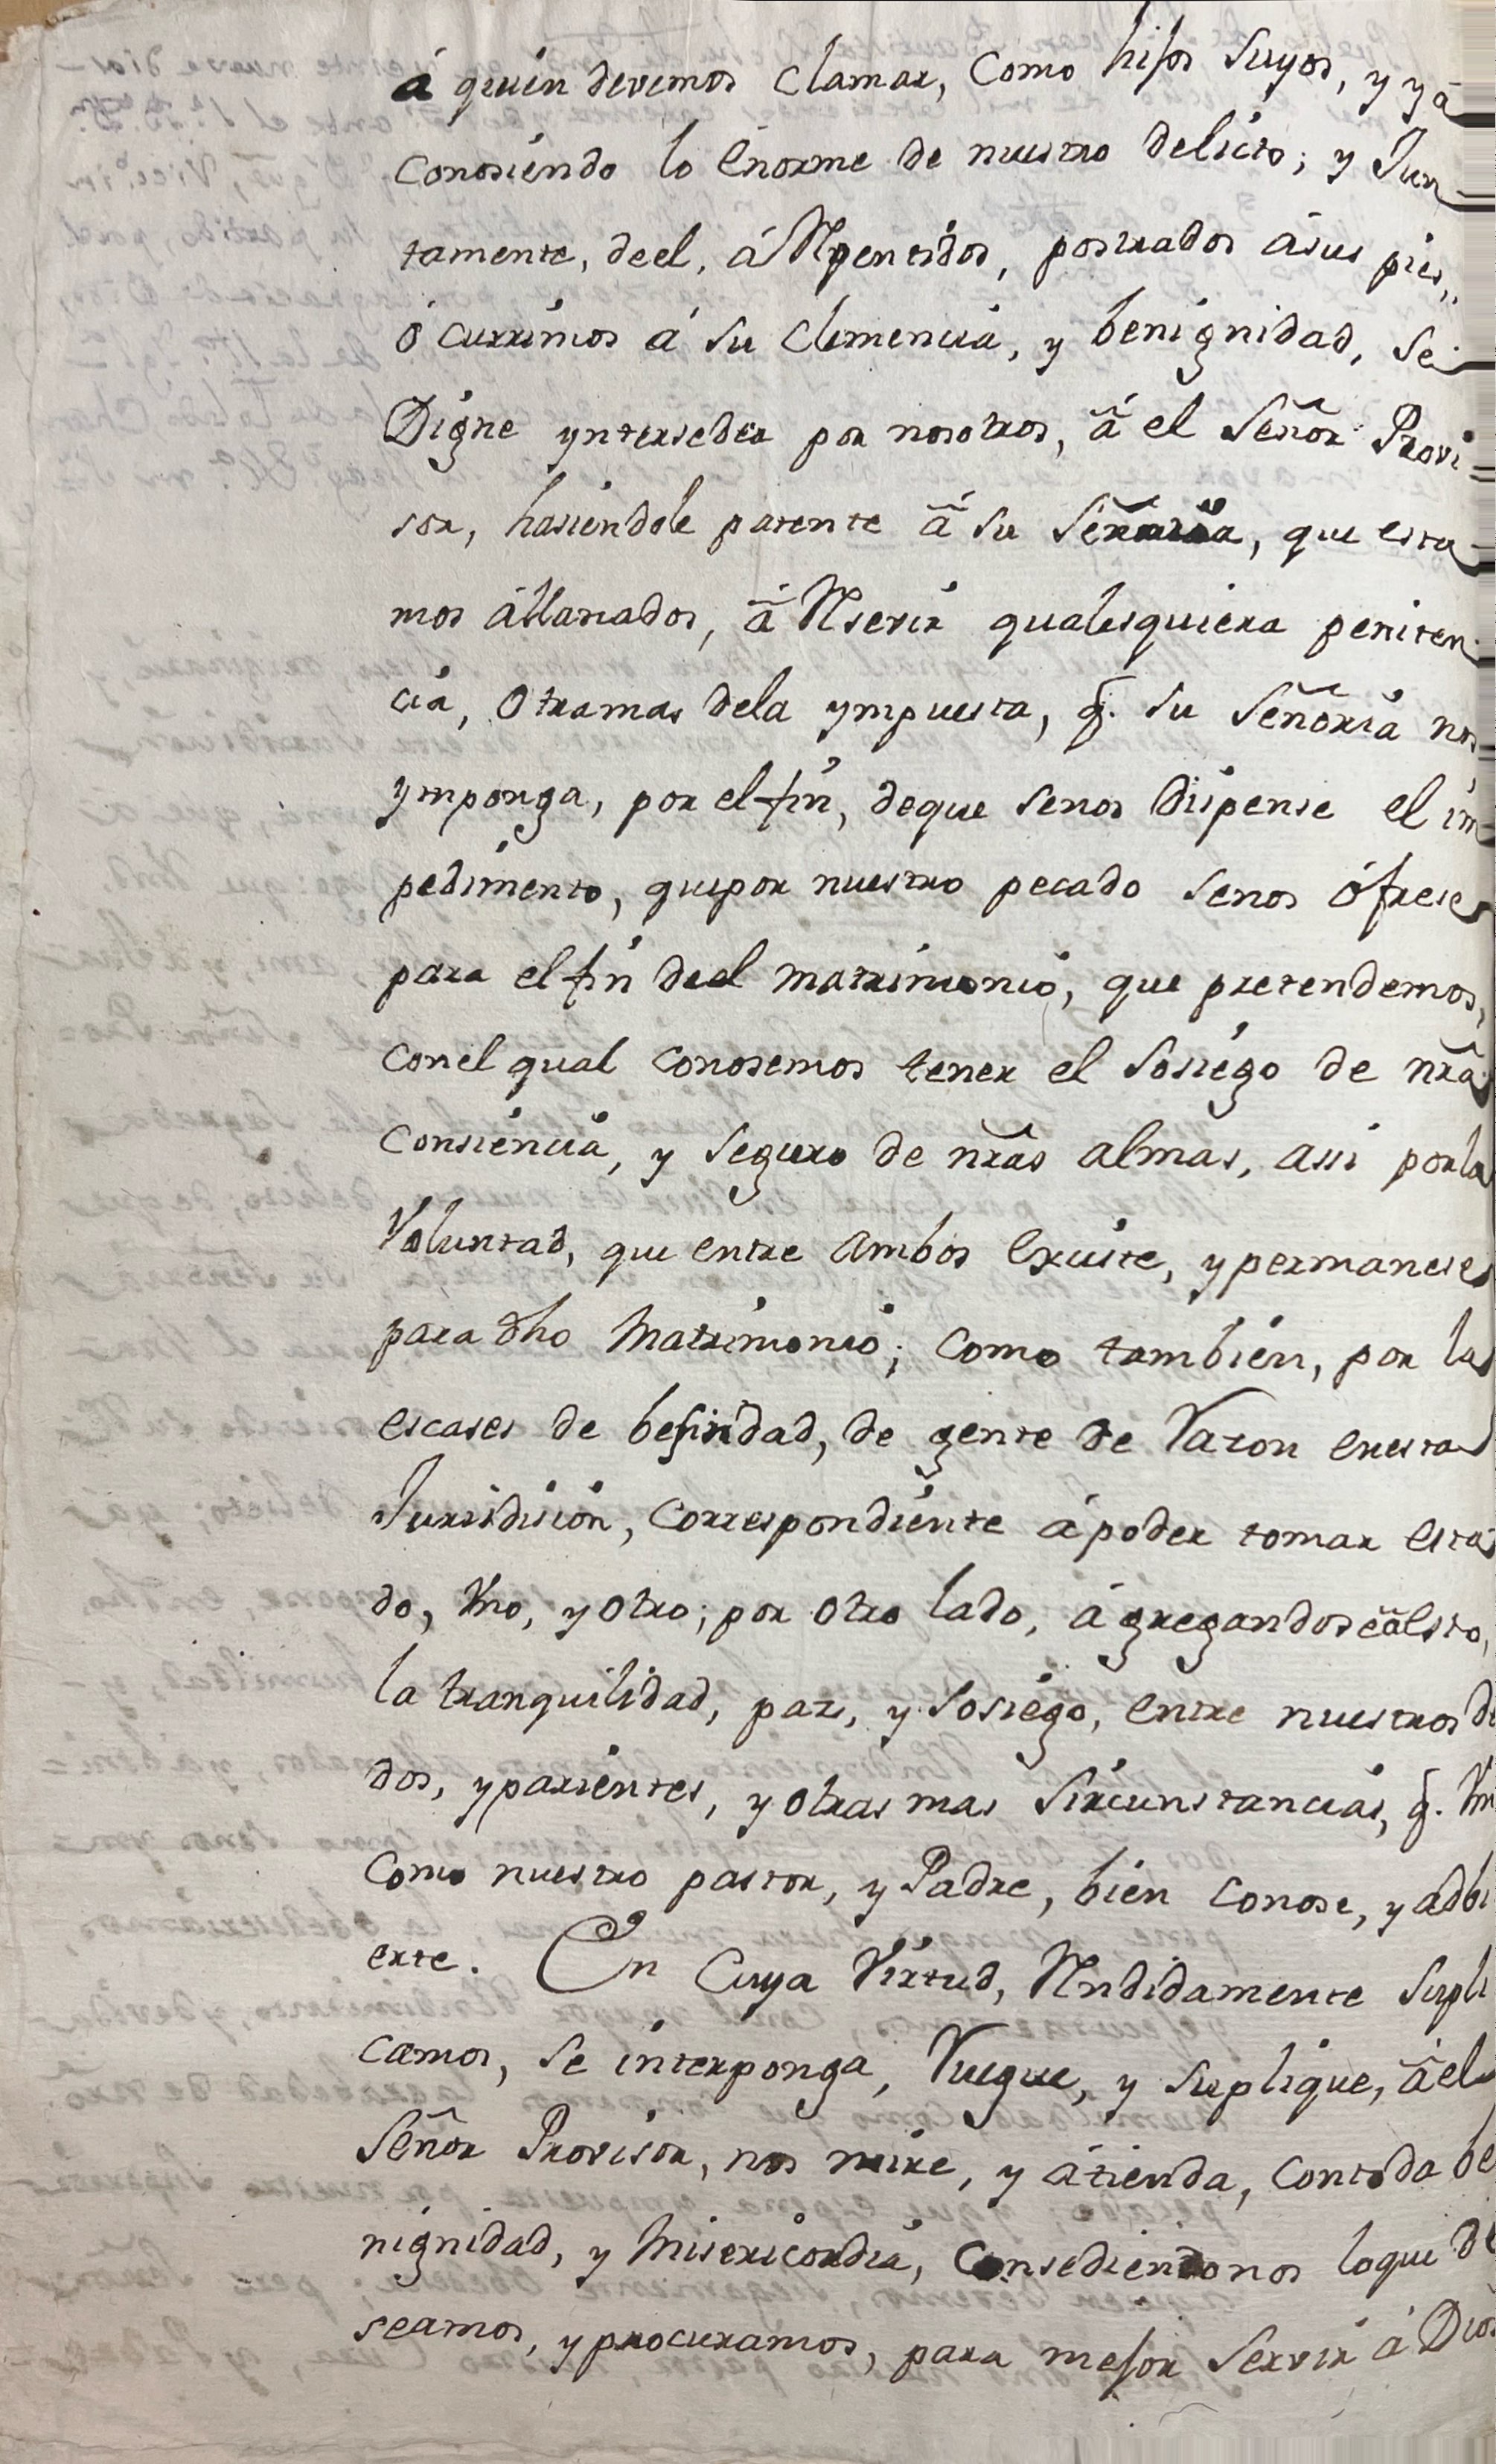 á quien devemos clamar, como hijos suyos, y ya
conosiendo lo enorme de nuestro delicto; y Jun
tamente, deel, á Rrpentidos, postrados ásus pies,,
ócurrimos á su clemencia, y benignidad, se
Digne ynterseder por nosotros, â el Señor Provi=
sor, hasiendole patente â su Señoria, que esta
mos állanados, â Resevir qualesquiera peniten
cia, otramas dela ympuesta, q. su Señoria nos
ymponga, por el fin, deque senos dispense el im
pedimento, quepor nuestro pecado senos ófrese
para elfin deel matrimonio, que pretendemos,
conel qual conosemos tener el sosiego de nrâ
consiencia, y seguro de nrâs almas, assi porla
Voluntad, que entre ambos existe, y permanese
para dho Matrimonio; como tambien, por la
escases de besindad, de gente de Razon enesta
Jurisdision, correspondiente ápoder tomar esta
do, Vno, y otro; por otro lado, ágregandoseâesto,
la tranquilidad, paz, y sosiego, entre nuestros de
dos, y parientes, y otras mas sircunstancias, q. Vm
como nuestro pastor, y Padre, bien conose, y adbi
erte. En cuya Virtud, Rendidamente supli
camos, se interponga, Ruegue, y suplique, âel
Señor Provisor, nos mire, y átienda, contoda be
nignidad, y Misericordia, consediendonos loque de
seamos, y procuramos, para mejor servir á Dios